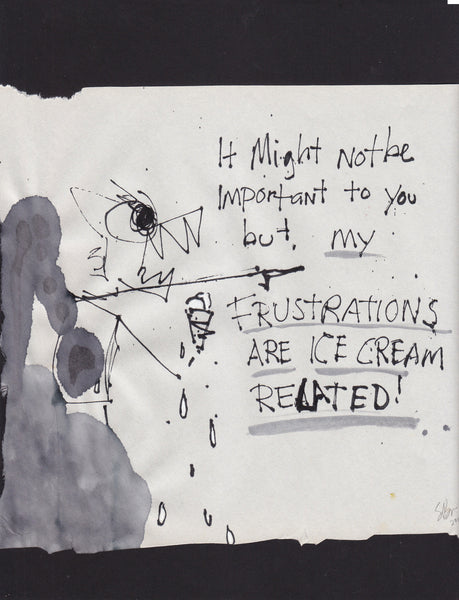 It Might Not be
Important to you
but, my
FRUSTRATIONS
ARE ICE CREAM
RELATED!